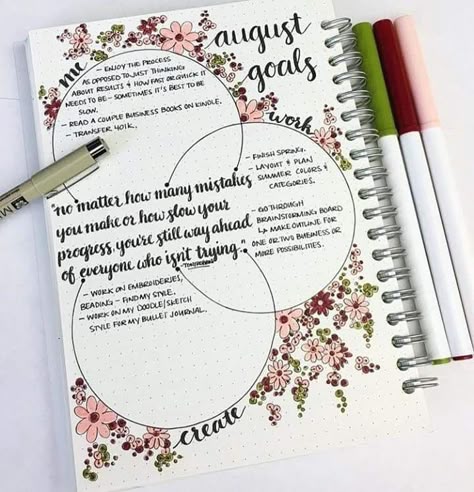 august
goals
me
- ENJOY THE PROCESS
AS OPPOSED TO JUST THINKING
ABOUT RESULTS & HOW FAST OR QUICK IT
NEEDS TO BE - SOMETIMES IT'S BEST TO BE
SLOW.
- READ A COUPLE BUSINESS BOOKS ON KINDLE.
- TRANSFER 401K.
work
- FINISH SPRING.
- LAYOUT & PLAN
SUMMER COLORS &
CATEGORIES.
- GO THROUGH
BRAINSTORMING BOARD
↳ MAKE OUTLINE FOR
ONE OR TWO BUSINESS OR
MORE POSSIBILITIES.
"no matter how many mistakes
you make or how slow your
progress, you're still way ahead
of everyone who isn't trying."
- WORK ON EMBROIDERIES,
BEADING - FIND MY STYLE.
- WORK ON MY DOODLE/SKETCH
STYLE FOR MY BULLET JOURNAL.
create